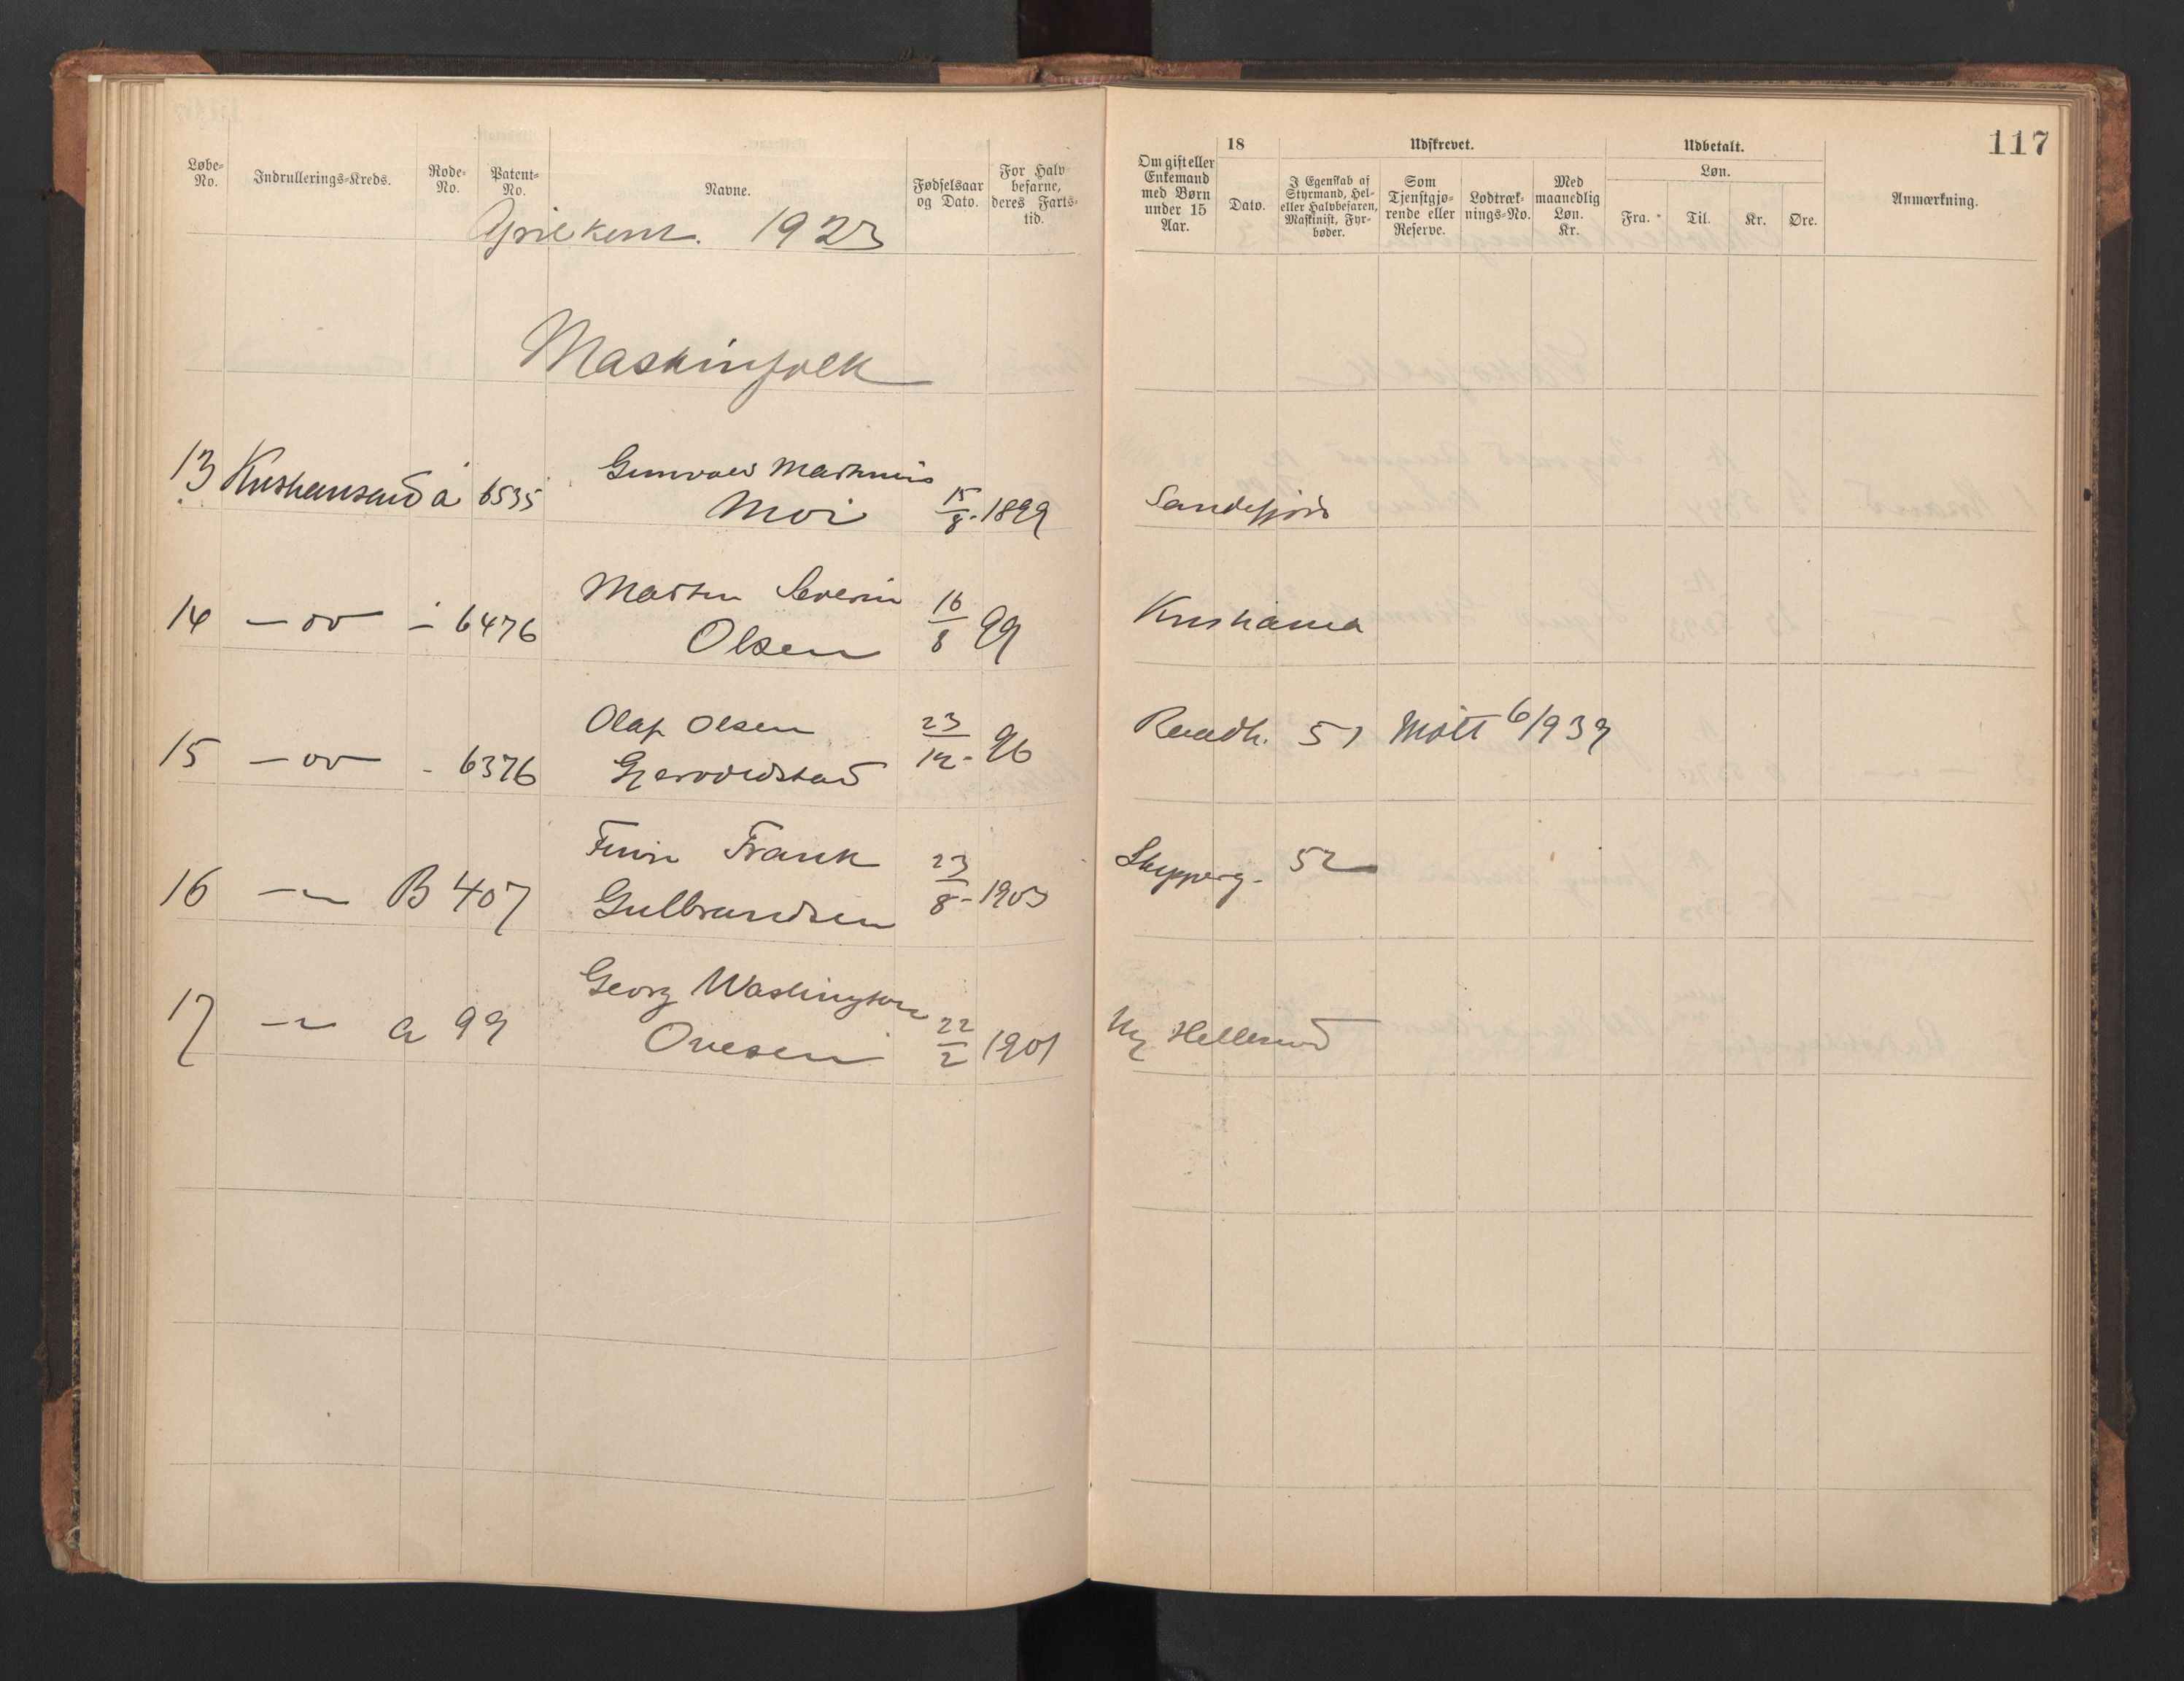 117
Løbe-No. Indrullerings-Kreds. Rode-No. Patent-No. Navne. Fødselsaar og Dato. For Halvbefarne, deres Fartstid.
Om gift eller Enkemand med Børn under 15 Aar. 18 Dato. Udskrevet. I Egenskab af Styrmand, Hel- eller Halvbefaren, Maskinist, Fyrbøder. Som Tjenstgjørende eller Reserve. Lodtræknings-No. Med maanedlig Løn. Kr. Udbetalt. Løn. Fra. Til. Kr. Øre. Anmærkning.
April kont. 1923
Maskinfolk
13 Kristiansand a 6535 Gunvald Mathinius Moi 15/8 - 1899 Sandefjord
14 — do — - 6476 Martin Severin Olsen 16/8 99 Kristiania
15 — do — - 6376 Olaf Olsen 23/12 - 96 Raadh. 51 Mött 6/9 39
16 — B 407 Finn Frank Gulbrandsen 23/8 - 1903 Skipperg. 52
17 — a 99 Georg Washington Ovesen 22/2 1901 Ny Hellesund